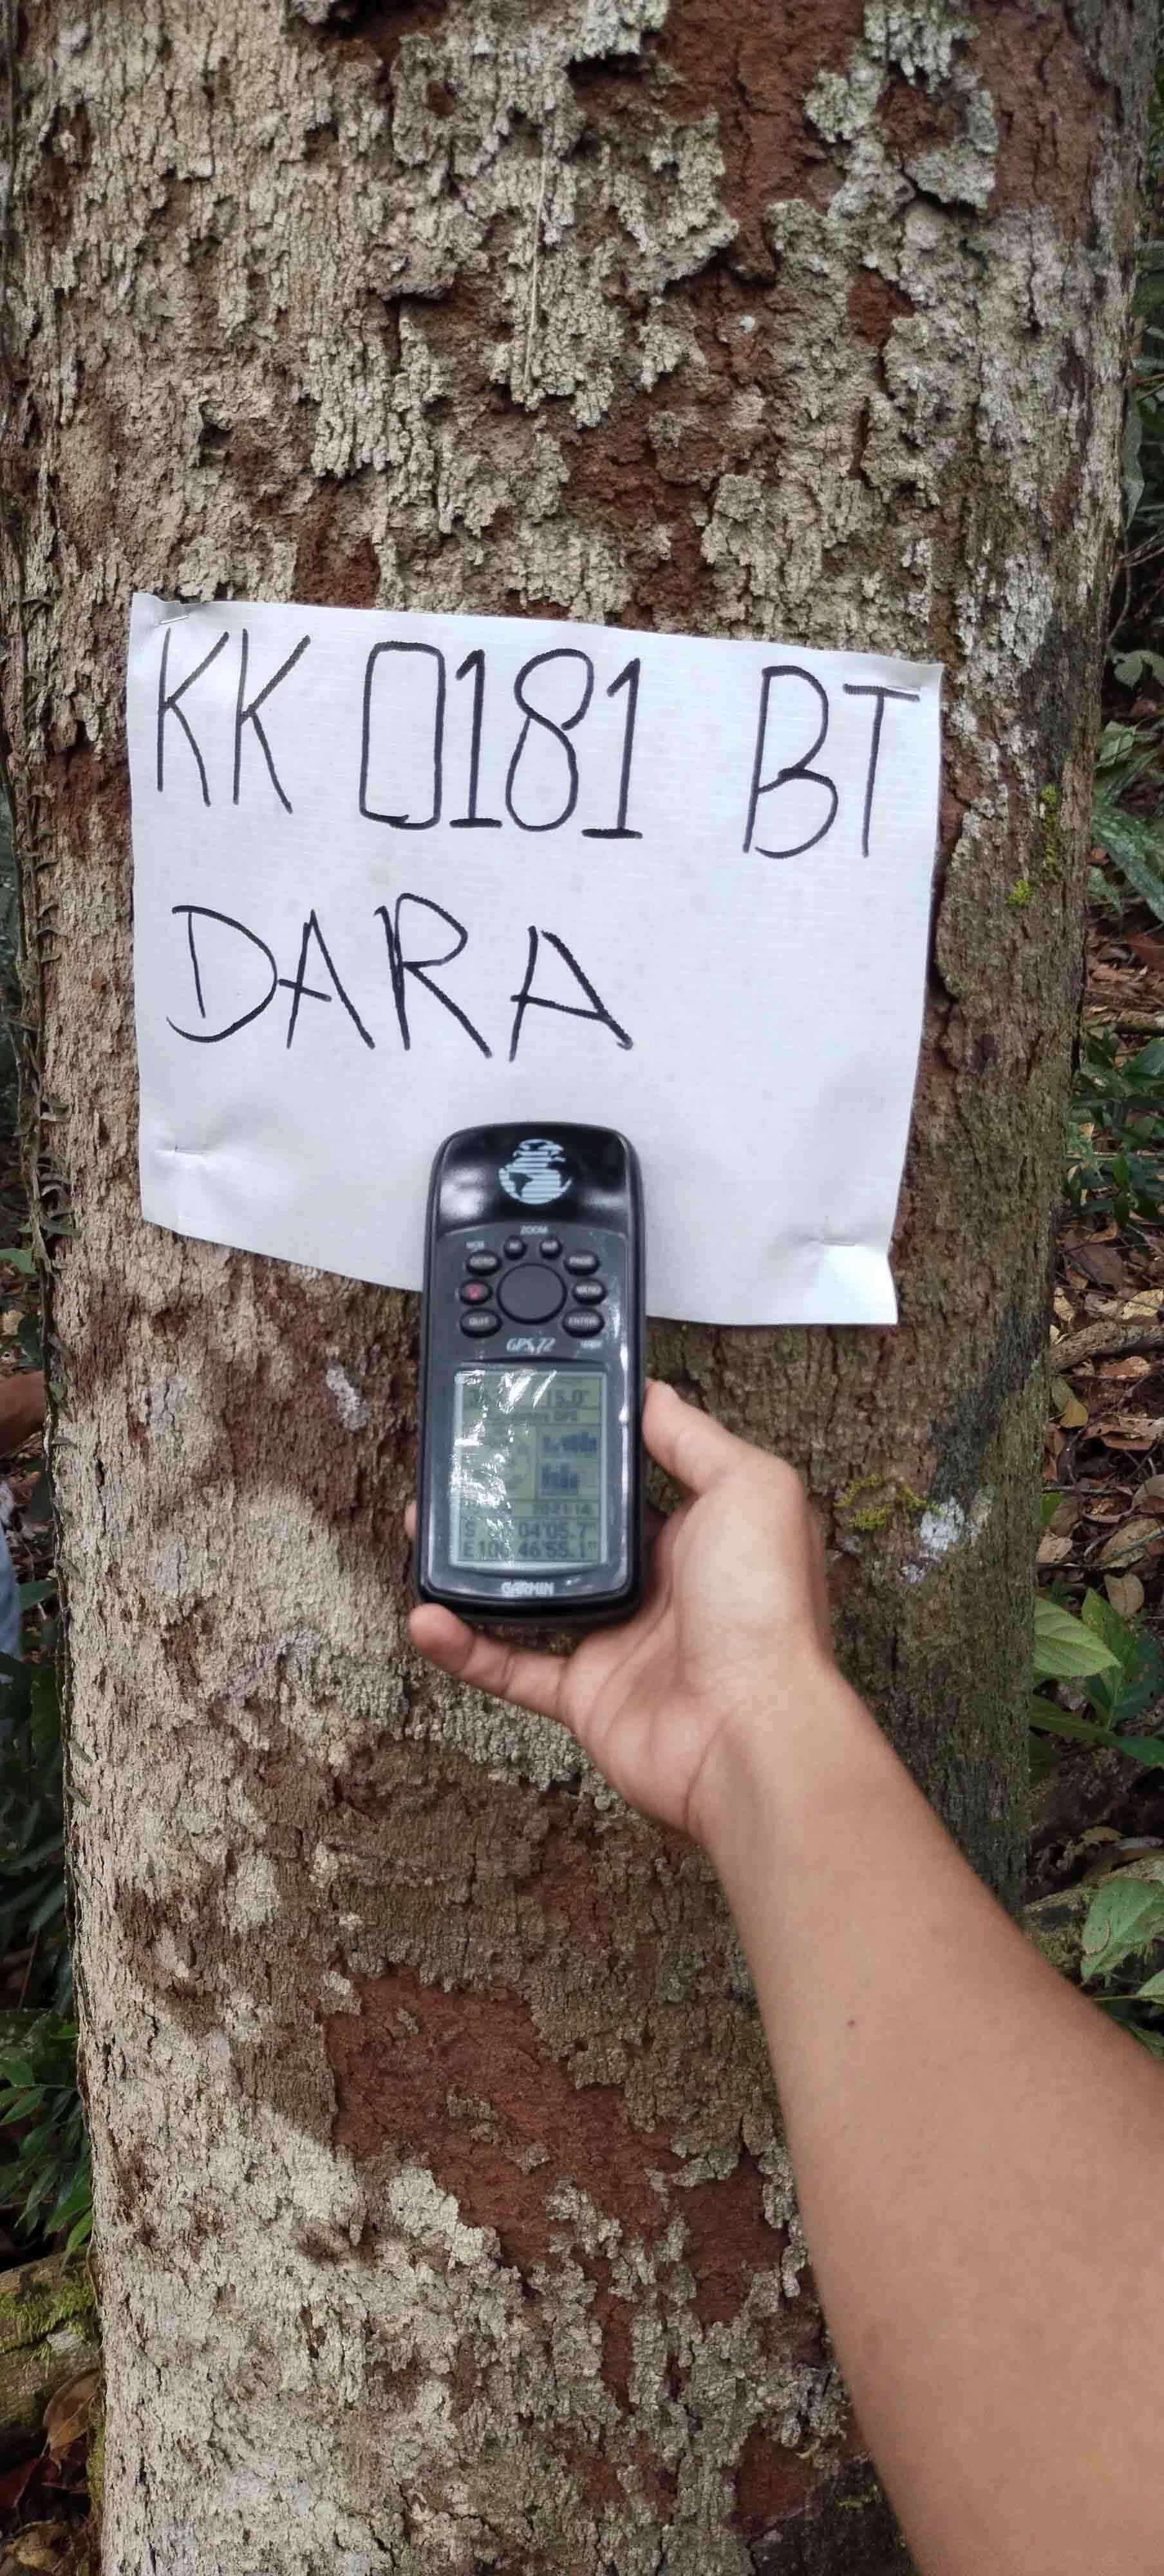 KK 0181 BT
DARA
ZOOM
PAGE
MENU
QUIT ENTER
GPS 72
15.0'
S 04'05.7"
E106 46'55.1"
GARMIN